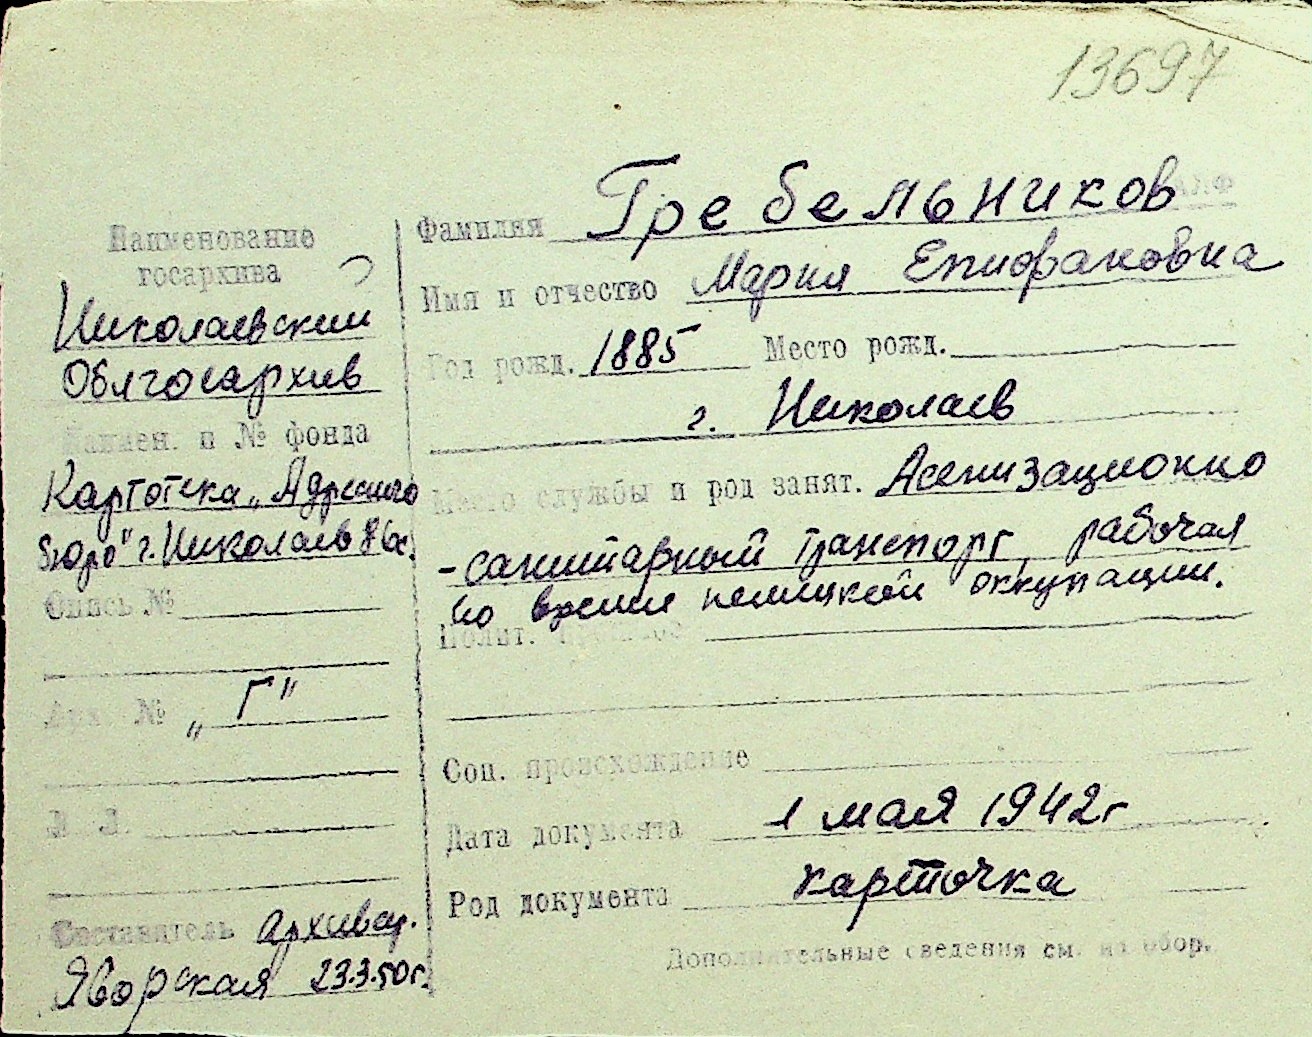 13697
Фамилия Гребельников
Имя и отчество Мария Епифановна
Год рожд. 1885 Место рожд.
г. Николаев
Место службы и род занят. Асенизационно
-санитарный транспорт, рабочая
во время немецкой оккупации.
Полит.
Соц. происхождение
Дата документа 1 мая 1942г
Род документа карточка
Дополнительные сведения см. на обор.
Наименование
госархива
Николаевский
Облгосархив
Наимен. и № фонда
Картотека „Адресного
бюро" г. Николаев
Опись №
Арх. № „Г"
Л. Л.
Составитель Архивар.
Яворская 23.3.50г.